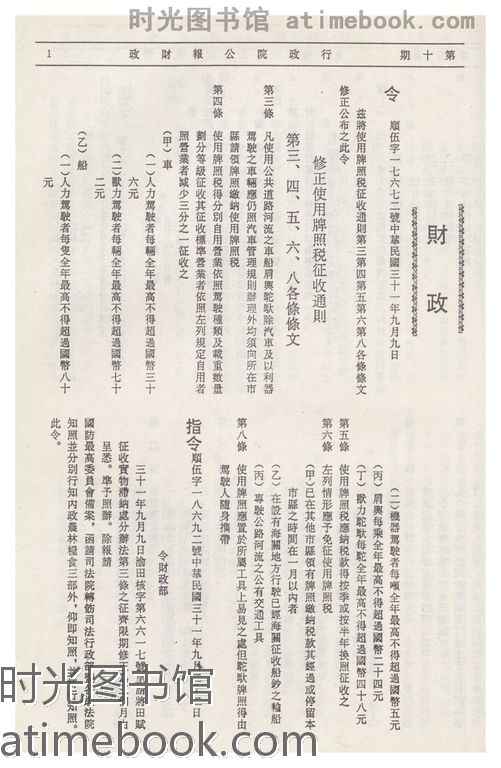 时光图书馆 atimebook.com
第十期 行政院公報財政 1
財政
令 順伍字一七六七二號中華民國三十一年九月九日
茲將使用牌照税征收通則第三第四第五第六第八各條條文
修正公布之此令
修正使用牌照税征收通則
第三、四、五、六、八各條條文
第三條 凡使用公共道路河流之車船肩輿駝馱除汽車及以利器
駕駛之車輛應仍照汽車管理規則辦理外均須向所在市
縣請領牌照繳納使用牌照税
第四條 使用牌照税得分別自用營業依照駕駛種類及載重數量
劃分等級征收其征收標準營業者依照左列規定自用者
照營業者減少三分之一征收之
(甲)車
(一)人力駕駛者每輛全年最高不得超過國幣三十
六元
(二)獸力駕駛者每輛全年最高不得超過國幣七十
二元
(乙)船
(一)人力駕駛者每隻全年最高不得超過國幣八十
元
(二)機器駕駛者每噸全年最高不得超過國幣五元
(丙)肩輿每乘全年最高不得超過國幣二十四元
(丁)獸力駝馱每駝全年最高不得超過國幣四十八元
第五條 使用牌照税應納税款得按季或按半年換照征收之
第六條 左列情形應予免征使用牌照税
(甲)已在其他市縣領有牌照繳納税款其經過或停留本
市縣之時間在一月以內者
(乙)在設有海關地方行駛已經海關征收船鈔之輪船
(丙)專駛公路河流之公有交通工具
第八條 使用牌照應置於所屬工具上易見之處但駝馱牌照得由
駕駛人隨身攜帶
指令 順伍字一八六九二號中華民國三十一年九月 日
令財政部
三十一年九月九日渝田核字第六六一七號 請將田賦
征收實物滯納處分辦法第三條之征齊限期修正 月由
呈悉。準予照辦。除報請
國防最高委員會備案，函請司法院轉飭司法行政部 法院
知照並分別行知內政農林糧食三部外，仰即知照， 知照。
此令。
时光图书馆
atimebook.com